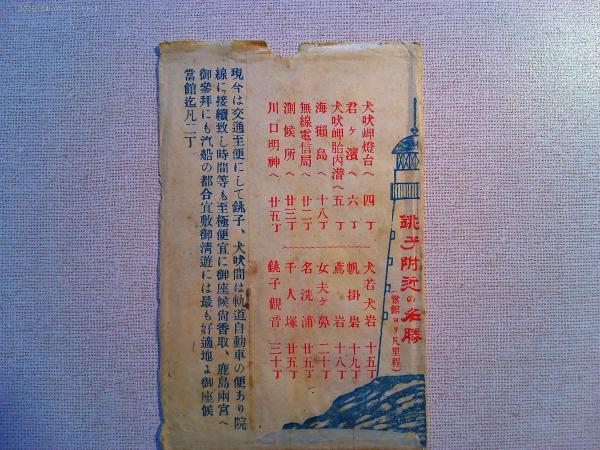 銚子附近の名勝
(當館ヨリ凡里程)
犬吠岬燈台へ 四丁
君ヶ濱へ 六丁
犬吠岬胎内潜へ 五丁
海獺島へ 十八丁
無線電信局へ 廿二丁
測候所へ 廿三丁
川口明神へ 廿五丁
犬若犬岩 十五丁
帆掛岩 十九丁
鳶岩 十八丁
女夫ヶ鼻 二十丁
名洗浦 廿五丁
千人塚 廿五丁
銚子觀音 三十丁
現今は交通至便にして銚子、犬吠間は軌道自動車の便あり院
線に接續致し時間等も至極便宜に御座候尙香取、鹿島兩宮へ
御參拜にも汽船の都合宜敷御淸遊には最も好適地よ御座候
當館迄凡二丁